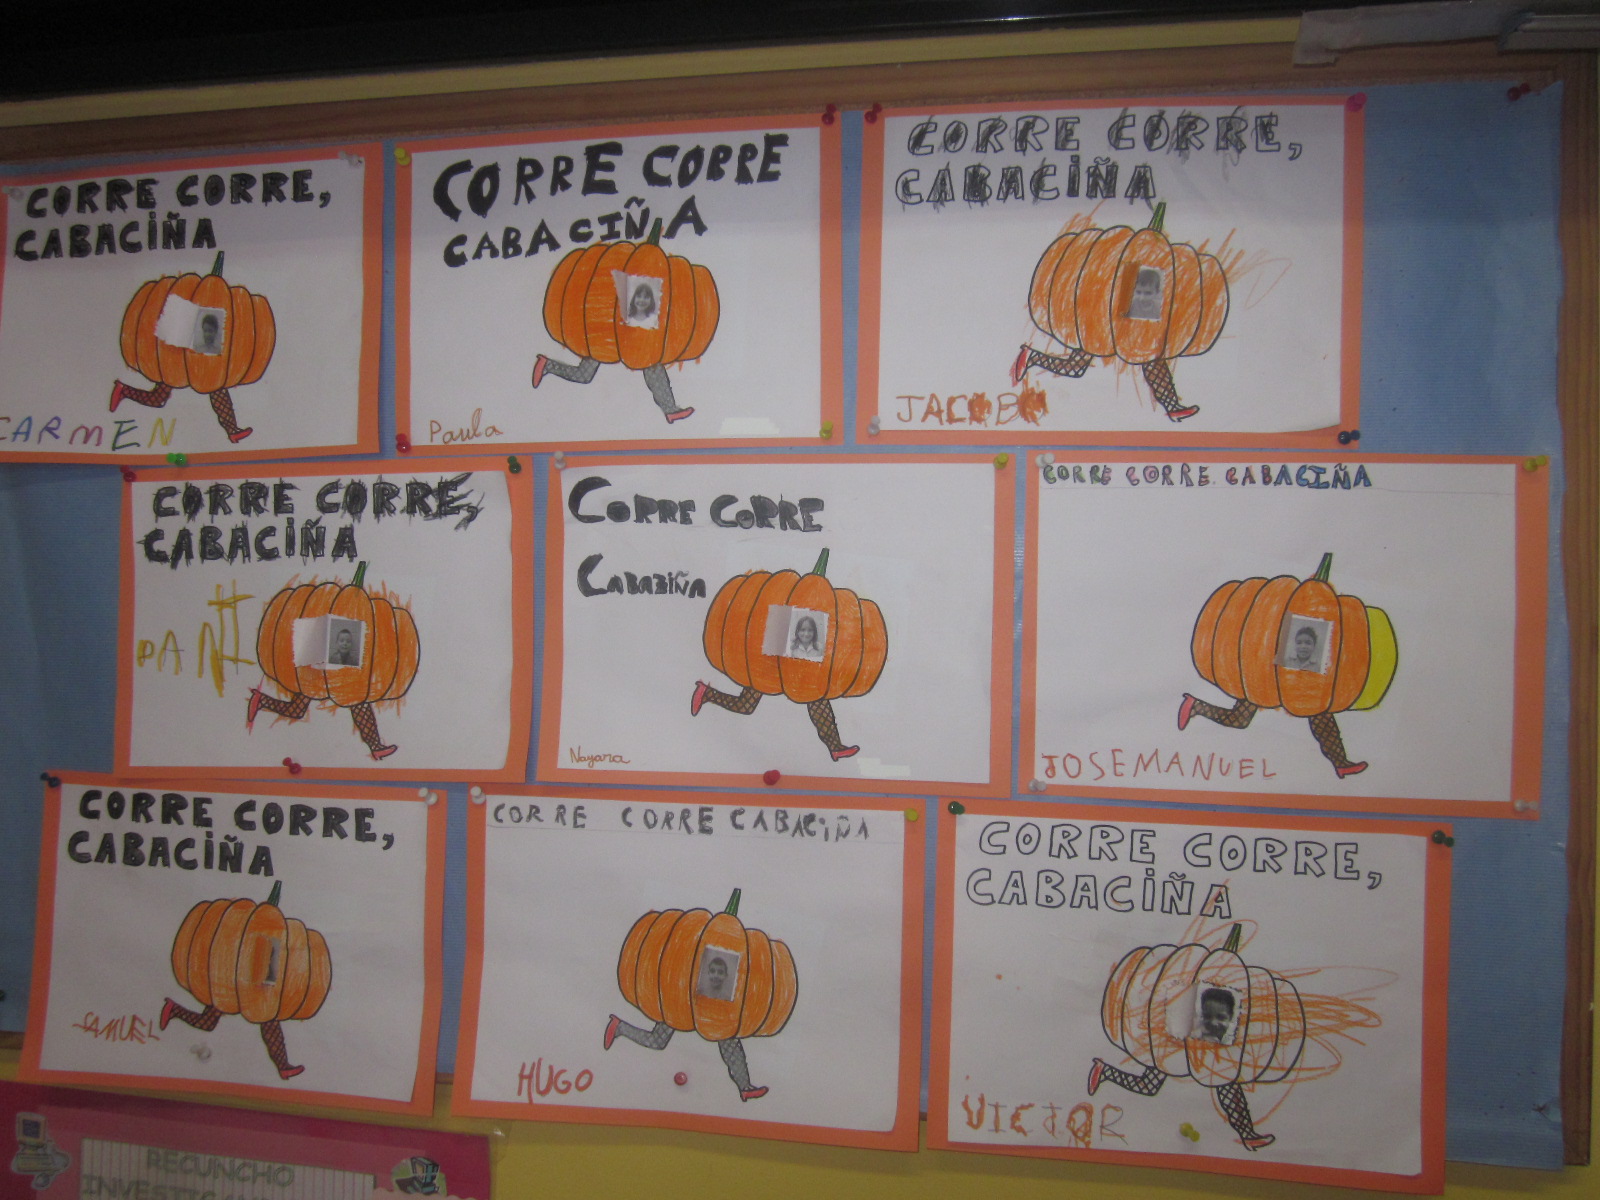 CORRE CORRE,
CABACIÑA
CARMEN
CORRE CORRE
CABACIÑA
Paula
CORRE CORRE,
CABACIÑA
JACOBO
CORRE CORRE,
CABACIÑA
DANI
CORRE CORRE
CABAZIÑA
Nayara
CORRE CORRE CABACIÑA
JOSEMANUEL
CORRE CORRE,
CABACIÑA
SAMUEL
CORRE CORRE CABACIÑA
HUGO
CORRE CORRE,
CABACIÑA
VICTOR
RECUNCHO